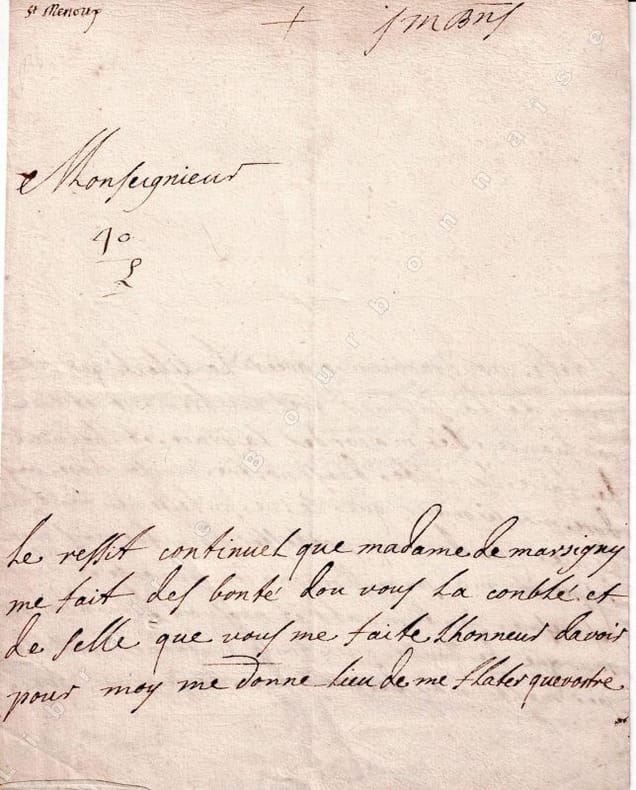 St Menoux
+
Monseignieur
40
le ressit continuel que madame de marsigny
me fait des bonté dou vous la conblé et
de selle que vous me faite lhonneur davoir
pour moy me donne lieu de me flater que vostre
Librairie Bourbonnaise